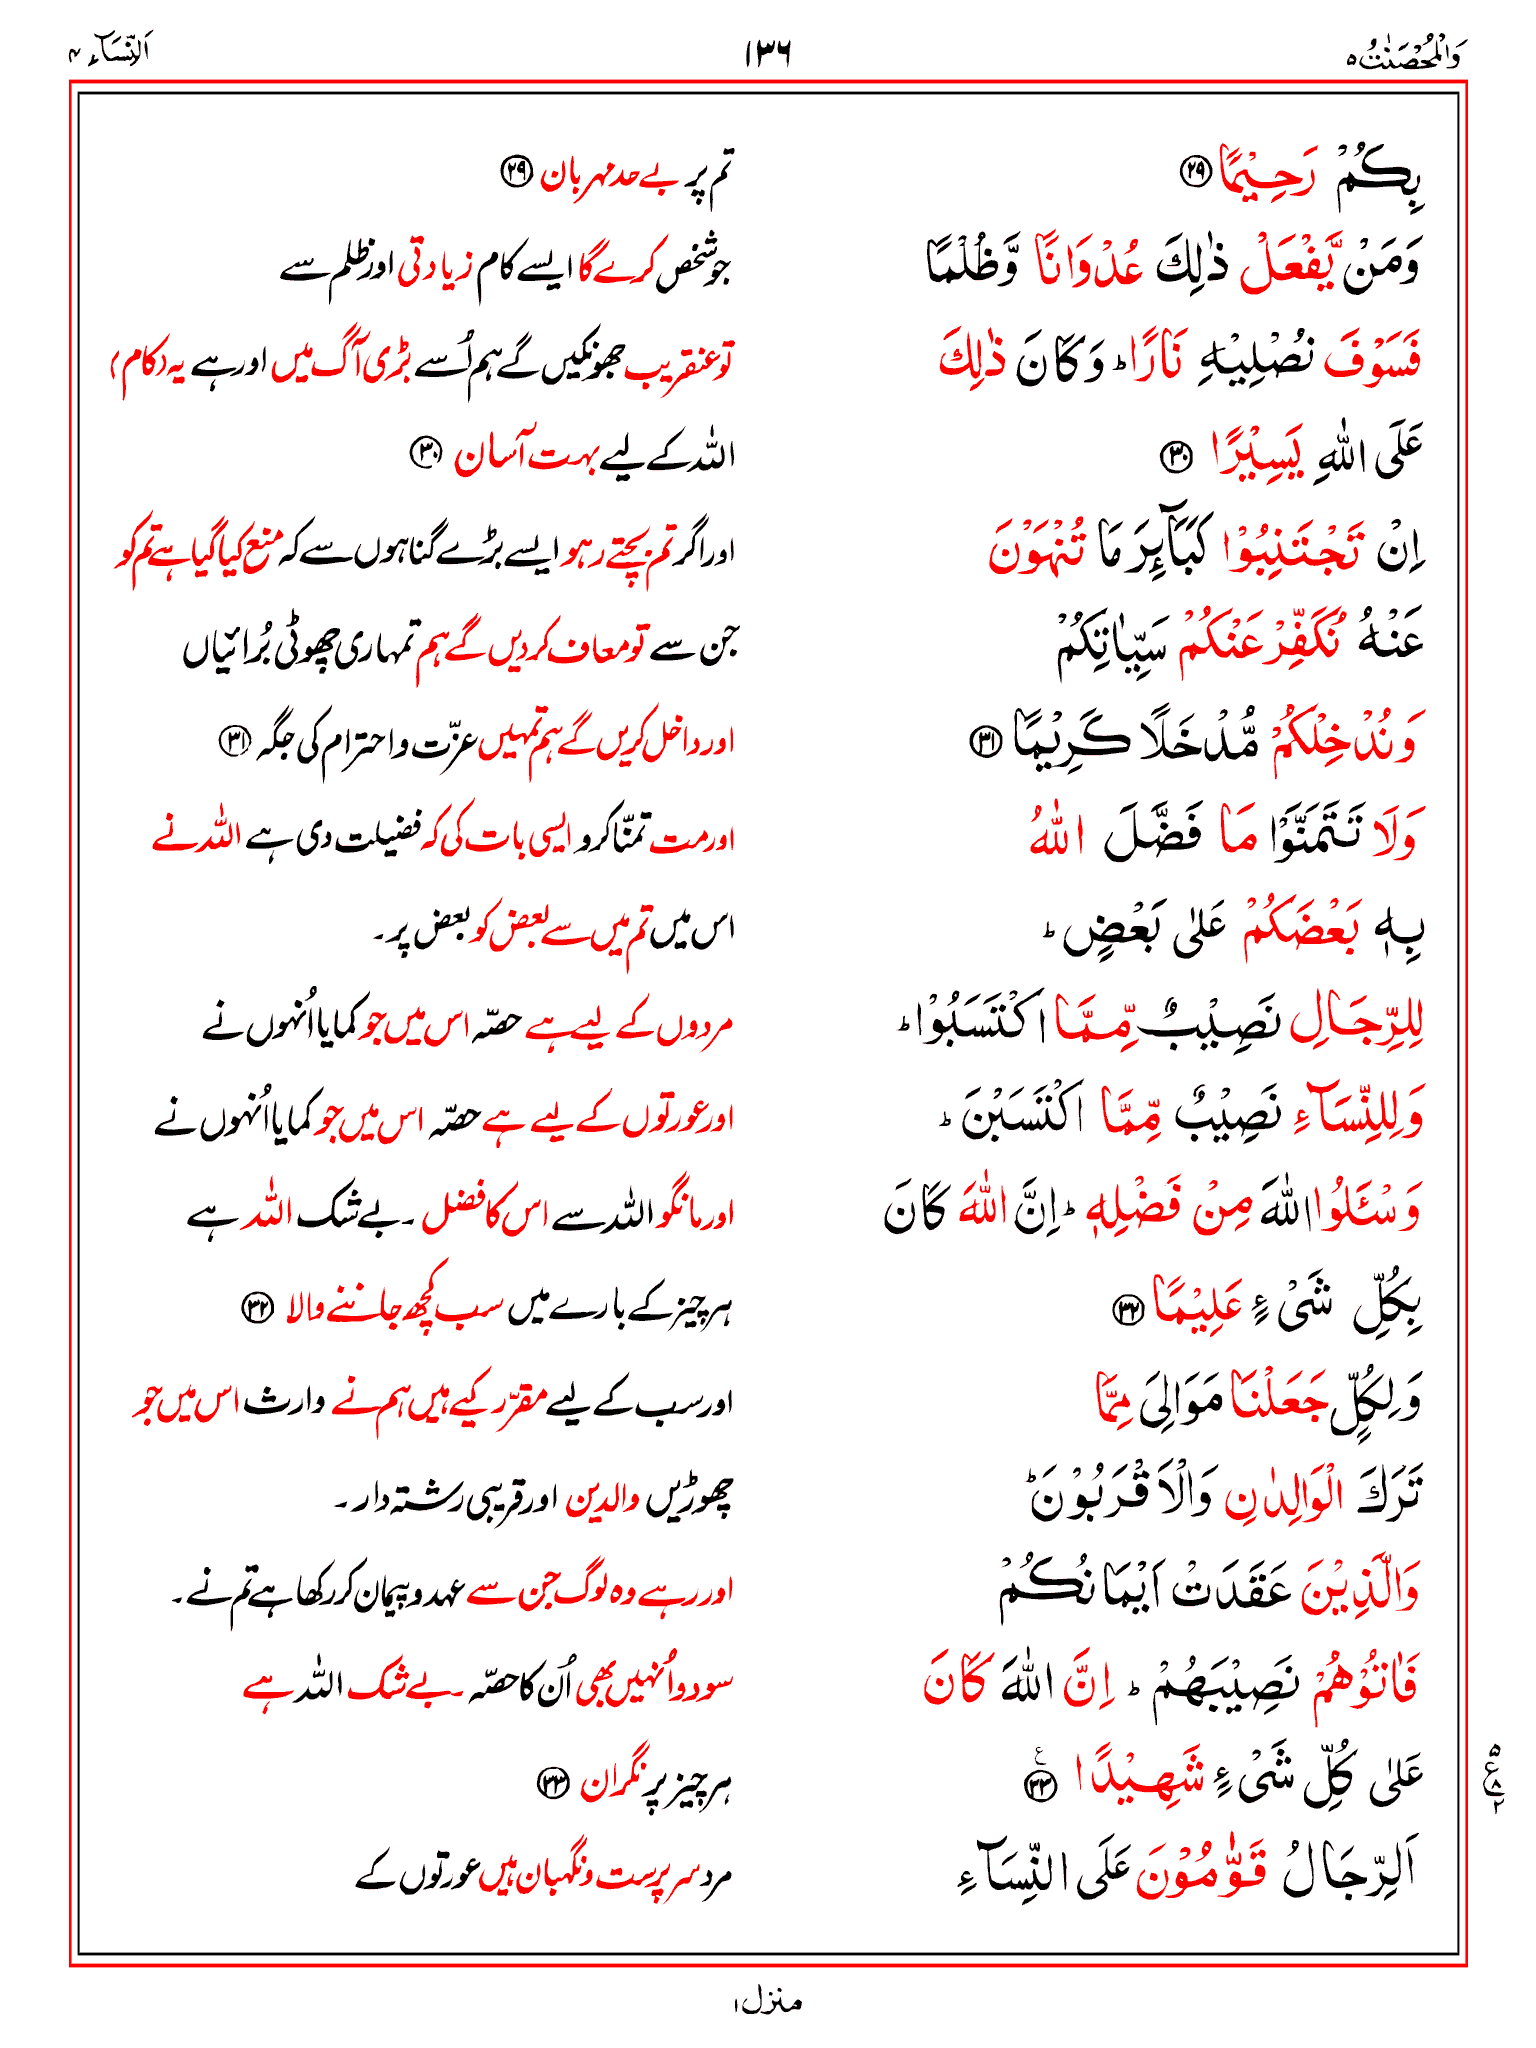 وَالْمُحْصَنٰتُ ۵ ۱۳۶ اَلنِّسَآء ۴
بِكُمْ رَحِيْمًا ﴿۲۹﴾ تم پر بے حد مہربان ﴿۲۹﴾
وَمَنْ يَّفْعَلْ ذٰلِكَ عُدْوَانًا وَّظُلْمًا جو شخص کرے گا ایسے کام زیادتی اور ظلم سے
فَسَوْفَ نُصْلِيْهِ نَارًا ؕ وَكَانَ ذٰلِكَ تو عنقریب جھونکیں گے ہم اُسے بڑی آگ میں اور ہے یہ (کام)
عَلَى اللّٰهِ يَسِيْرًا ﴿۳۰﴾ اللّٰہ کے لیے بہت آسان ﴿۳۰﴾
اِنْ تَجْتَنِبُوْا كَبَآئِرَ مَا تُنْهَوْنَ اور اگر تم بچتے رہو ایسے بڑے گناہوں سے کہ منع کیا گیا ہے تم کو
عَنْهُ نُكَفِّرْ عَنْكُمْ سَيِّاٰتِكُمْ جن سے تو معاف کردیں گے ہم تمہاری چھوٹی بُرائیاں
وَنُدْخِلْكُمْ مُّدْخَلًا كَرِيْمًا ﴿۳۱﴾ اور داخل کریں گے ہم تمہیں عزّت و احترام کی جگہ ﴿۳۱﴾
وَلَا تَتَمَنَّوْا مَا فَضَّلَ اللّٰهُ اور مت تمنّا کرو ایسی بات کی کہ فضیلت دی ہے اللّٰہ نے
بِهٖ بَعْضَكُمْ عَلٰى بَعْضٍ ؕ اس میں تم میں سے بعض کو بعض پر۔
لِلرِّجَالِ نَصِيْبٌ مِّمَّا اكْتَسَبُوْا ؕ مردوں کے لیے ہے حصّہ اس میں جو کمایا اُنہوں نے
وَلِلنِّسَآءِ نَصِيْبٌ مِّمَّا اكْتَسَبْنَ ؕ اور عورتوں کے لیے ہے حصّہ اس میں جو کمایا اُنہوں نے
وَسْـَٔلُوا اللّٰهَ مِنْ فَضْلِهٖ ؕ اِنَّ اللّٰهَ كَانَ اور مانگو اللّٰہ سے اس کا فضل ۔ بے شک اللّٰہ ہے
بِكُلِّ شَيْءٍ عَلِيْمًا ﴿۳۲﴾ ہر چیز کے بارے میں سب کچھ جاننے والا ﴿۳۲﴾
وَلِكُلٍّ جَعَلْنَا مَوَالِيَ مِمَّا اور سب کے لیے مقرّر کیے ہیں ہم نے وارث اس میں جو
تَرَكَ الْوَالِدٰنِ وَالْاَقْرَبُوْنَ ؕ چھوڑیں والدین اور قریبی رشتہ دار ۔
وَالَّذِيْنَ عَقَدَتْ اَيْمَانُكُمْ اور رہے وہ لوگ جن سے عہد و پیمان کر رکھا ہے تم نے ۔
فَاٰتُوْهُمْ نَصِيْبَهُمْ ؕ اِنَّ اللّٰهَ كَانَ سو دو اُنہیں بھی اُن کا حصّہ ۔ بے شک اللّٰہ ہے
عَلٰى كُلِّ شَيْءٍ شَهِيْدًا ﴿۳۳﴾ ع ہر چیز پر نگران ﴿۳۳﴾
۵ ع ۸ ۲
اَلرِّجَالُ قَوّٰمُوْنَ عَلَى النِّسَآءِ مرد سرپرست و نگہبان ہیں عورتوں کے
منزل ۱